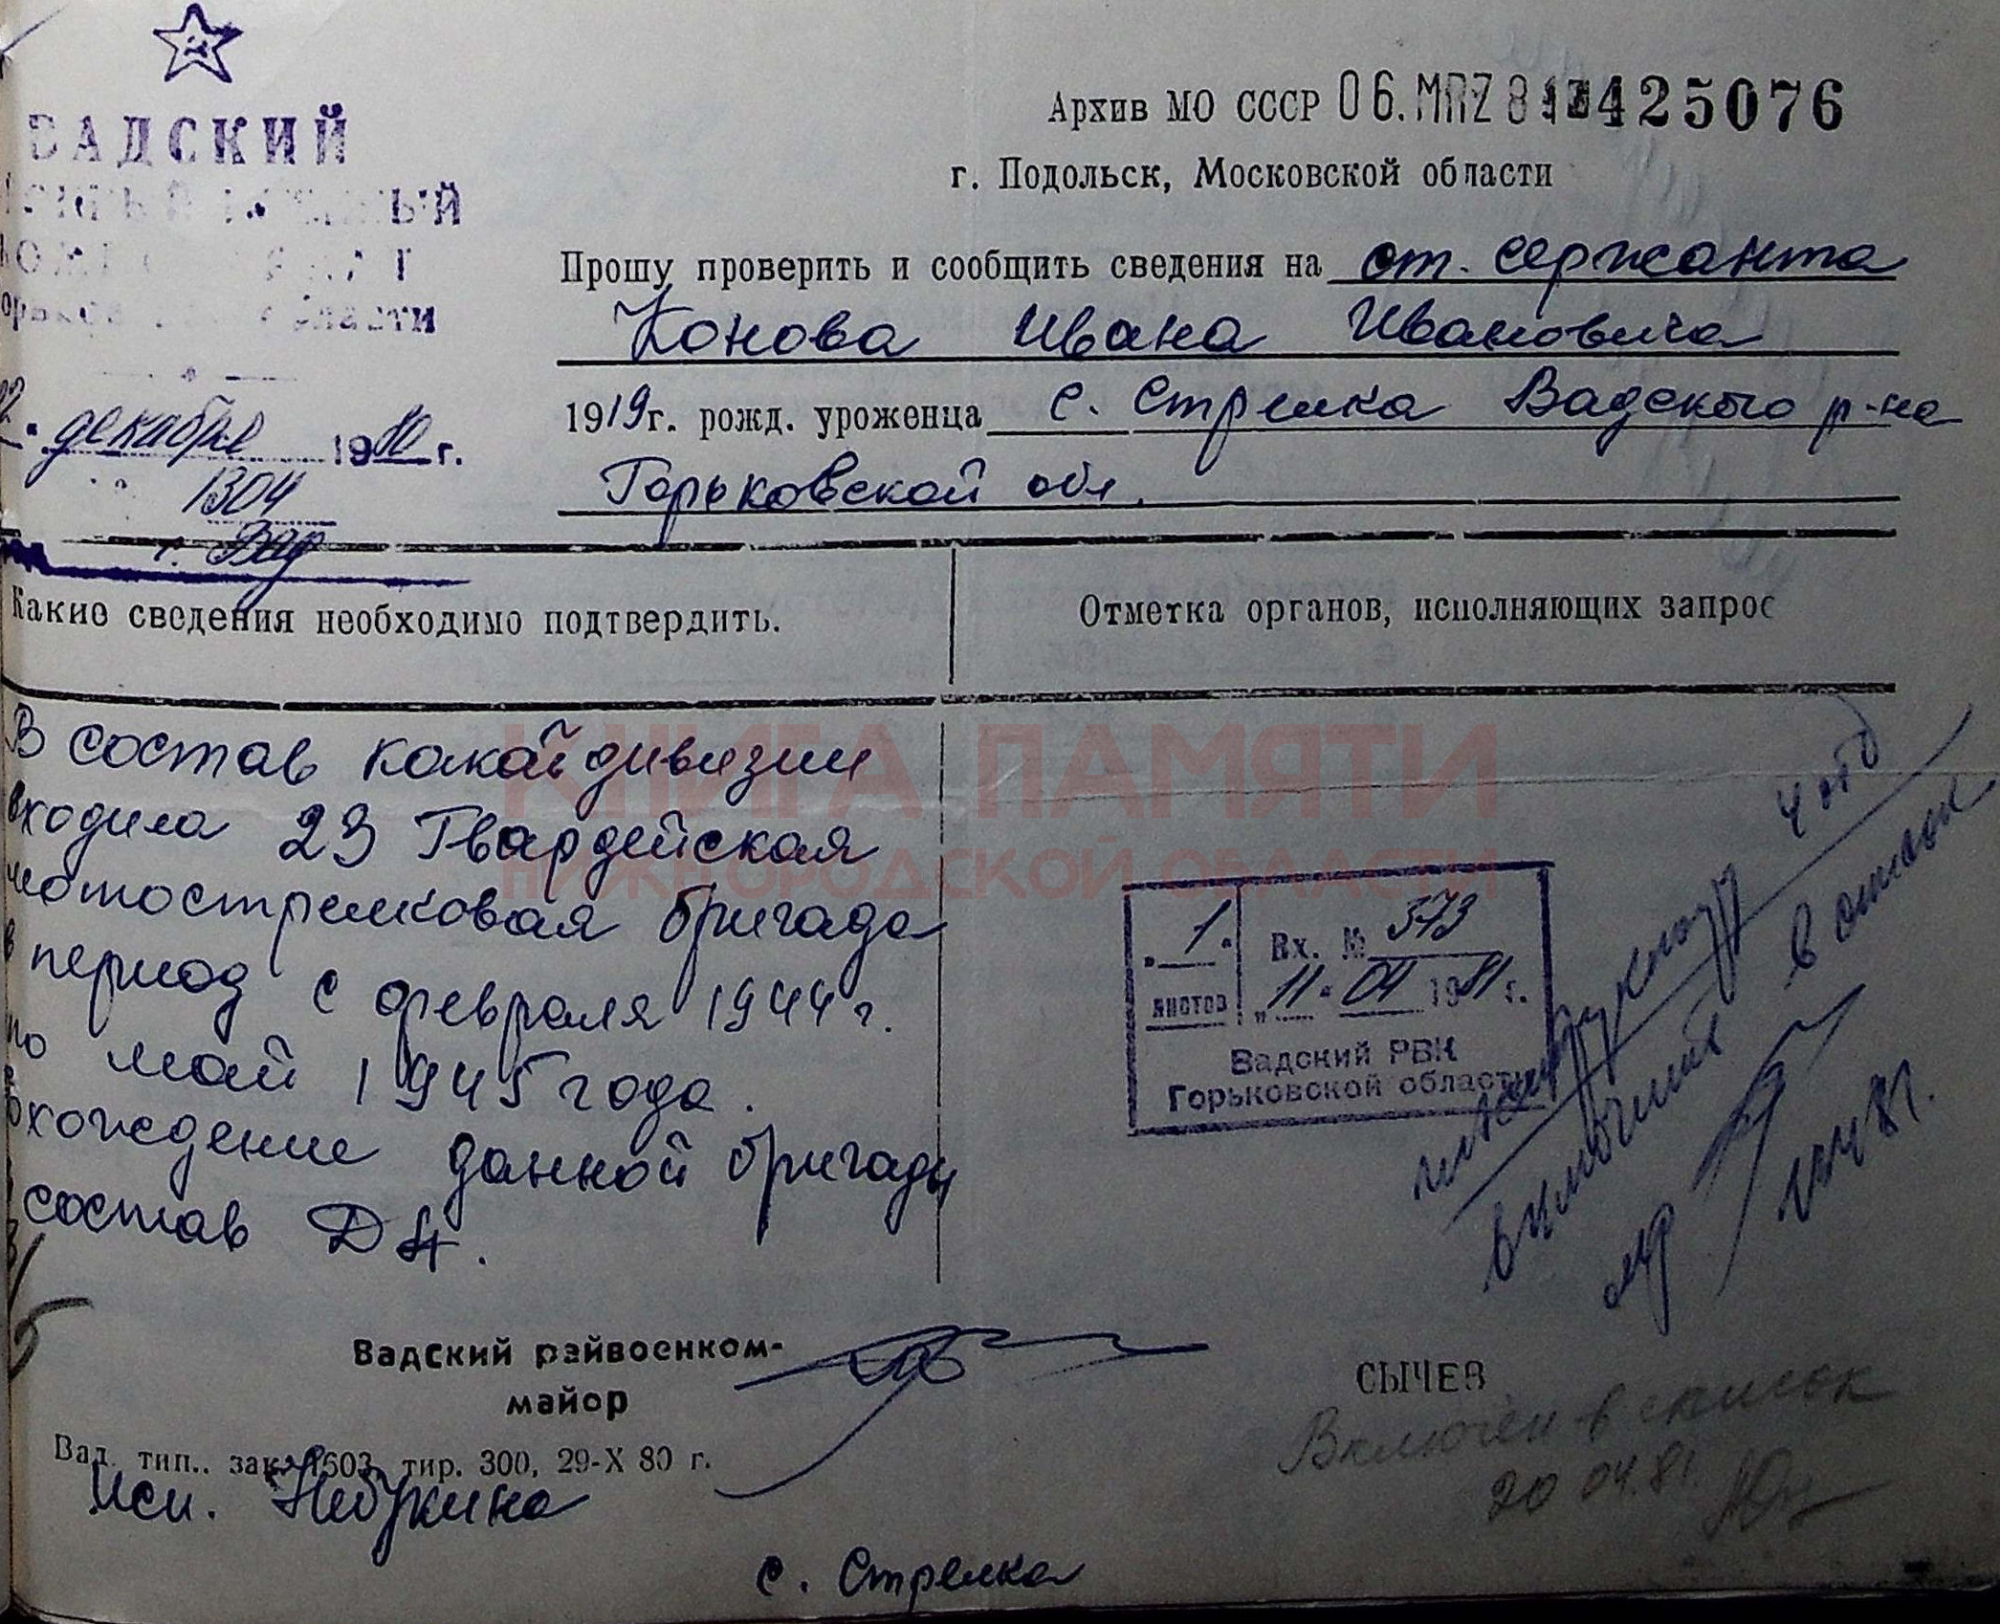 ВАДСКИЙ
области
декабря 1980 г.
1304
г. Вад
Архив МО СССР 06. MRZ 81 425076
г. Подольск, Московской области
Прошу проверить и сообщить сведения на ст. сержанта
Конова Ивана Ивановича
1919г. рожд. уроженца с. Стрелка Вадского р-на
Горьковской обл.
Какие сведения необходимо подтвердить.
Отметка органов, исполняющих запрос
В состав какой дивизии
входила 23 Гвардейская
мотострелковая бригада
в период с февраля 1944 г.
по май 1945 года.
вхождение данной бригады
состав ДА.
КНИГА ПАМЯТИ
НИЖЕГОРОДСКОЙ ОБЛАСТИ
„1" листов
Вх. № 373
„11" 04 1981 г.
Вадский РВК
Горьковской области
4 отд
включить в список
Вадский райвоенком-
майор
СЫЧЕВ
Включен в список
20 04.81.
Вад. тип.. зак. 1603, тир. 300, 29-X 80 г.
Исп.
с. Стрелка